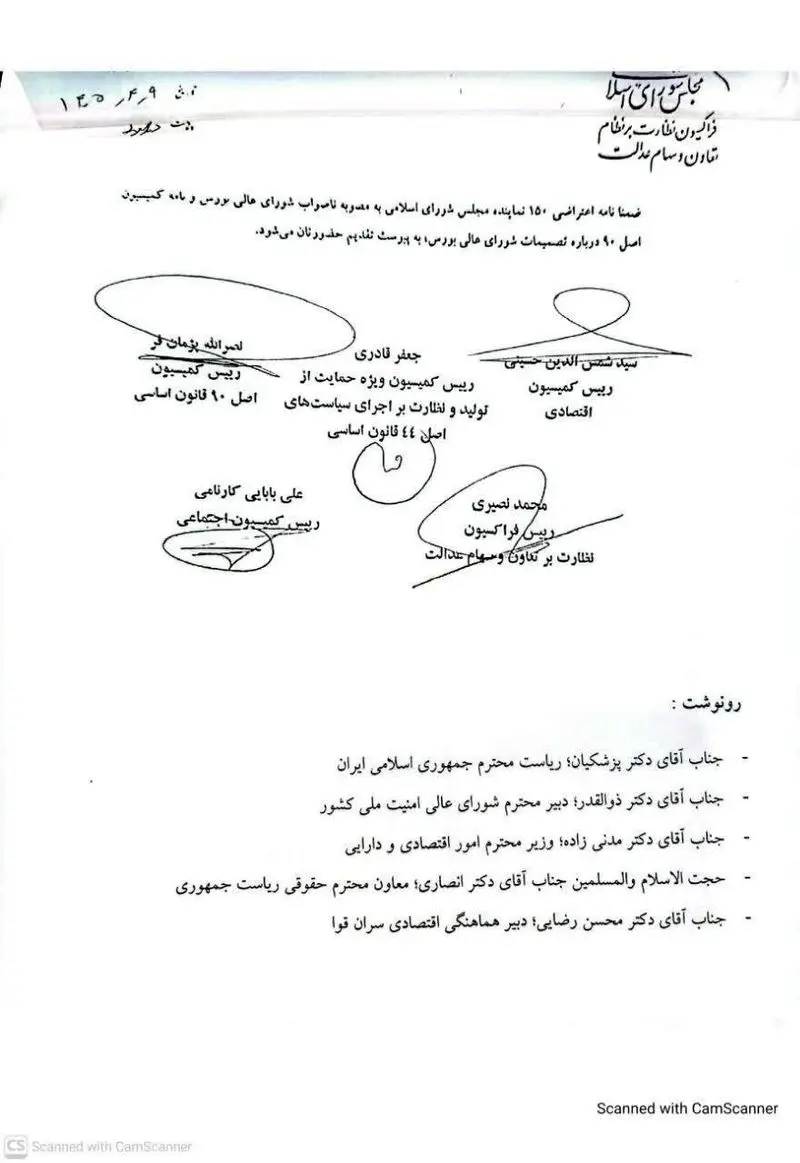 مجلس شورای اسلامی
فراکسیون نظارت بر نظام
تعاون و سهام عدالت
ضمنا نامه اعتراضی ۱۵۰ نماینده مجلس شورای اسلامی به مصوبه ناصواب شورای عالی بورس و نامه کمیسیون
اصل ۹۰ درباره تصمیمات شورای عالی بورس، به پیوست تقدیم حضورتان می‌شود.
سید شمس الدین حسینی
رییس کمیسیون
اقتصادی
جعفر قادری
رییس کمیسیون ویژه حمایت از
تولید و نظارت بر اجرای سیاست‌های
اصل ٤٤ قانون اساسی
نصرالله پژمان فر
رییس کمیسیون
اصل ۹۰ قانون اساسی
محمد نصیری
رییس فراکسیون
نظارت بر تعاون و سهام عدالت
علی بابایی کارنامی
رییس کمیسیون اجتماعی
رونوشت :
- جناب آقای دکتر پزشکیان؛ ریاست محترم جمهوری اسلامی ایران
- جناب آقای دکتر ذوالقدر؛ دبیر محترم شورای عالی امنیت ملی کشور
- جناب آقای دکتر مدنی زاده؛ وزیر محترم امور اقتصادی و دارایی
- حجت الاسلام والمسلمین جناب آقای دکتر انصاری؛ معاون محترم حقوقی ریاست جمهوری
- جناب آقای دکتر محسن رضایی؛ دبیر هماهنگی اقتصادی سران قوا
Scanned with CamScanner
CS Scanned with CamScanner